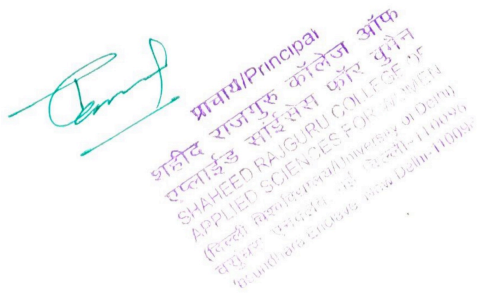 प्राचार्य/Principal
शहीद राजगुरु कॉलेज ऑफ
एप्लाईड साईंसेस फॉर वुमैन
SHAHEED RAJGURU COLLEGE OF
APPLIED SCIENCES FOR WOMEN
(दिल्ली विश्वविद्यालय/University of Delhi)
वसुंधरा एन्क्लेव, नई दिल्ली-110096
Vasundhara Enclave, New Delhi-110096